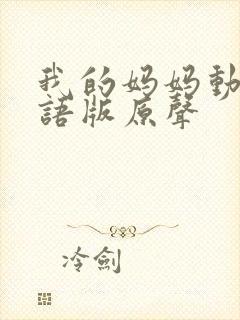 我的妈妈動
語版原聲
冷劍